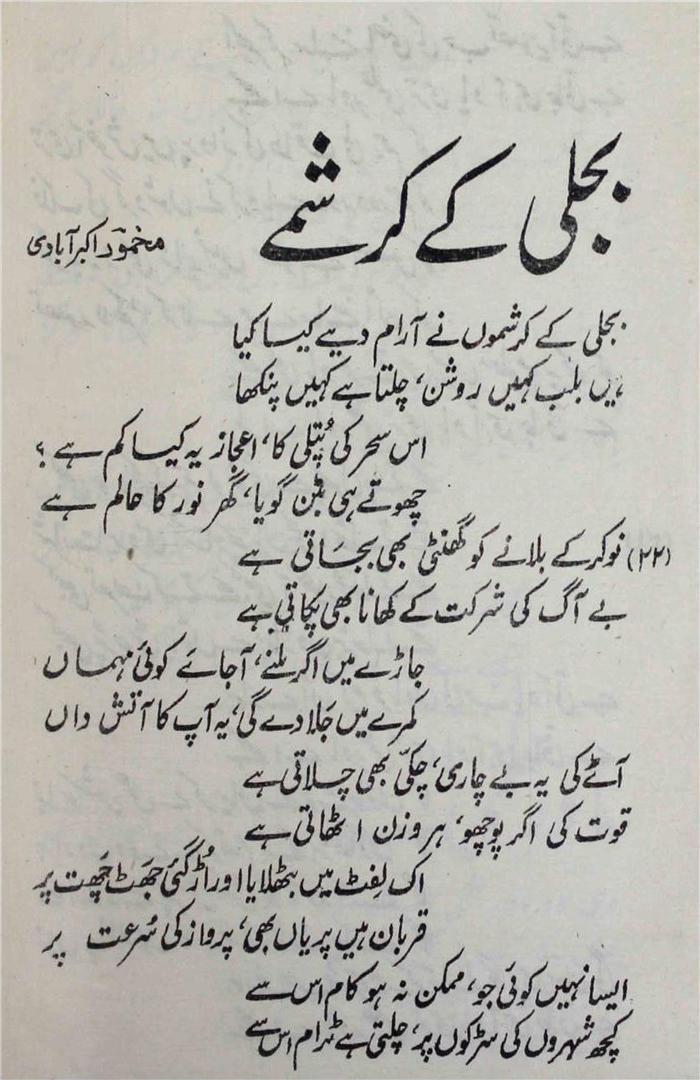 بجلی کے کرشمے
مخمور اکبر آبادی
بجلی کے کرشموں نے آرام دیے کیسا کیا
ہیں بلب کہیں روشن، چلتا ہے کہیں پنکھا
اس سحر کی پُتلی کا، اعجاز یہ کیسا کم ہے ؟
چھوتے ہی بٹن گویا، گھر نور کا عالم ہے
(۲۲) نوکر کے بلانے کو گھنٹی بھی بجاتی ہے
بے آگ کی شرکت کے کھانا بھی پکاتی ہے
جاڑے میں اگر ملنے، آجائے کوئی مہماں
کمرے میں جَلا دے گی، یہ آپ کا آتش داں
آٹے کی یہ بے چاری، چکّی بھی چلاتی ہے
قوت کی اگر پوچھو، ہر وزن اٹھاتی ہے
اک لِفٹ میں بٹھلایا اور اُڑ گئی جَھٹ چَھت پر
قربان ہیں پریاں بھی، پرواز کی سُرعت پر
ایسا نہیں کوئی جو، ممکن نہ ہو کام اس سے
کچھ شہروں کی سڑکوں پر، چلتی ہے ٹرام اس سے